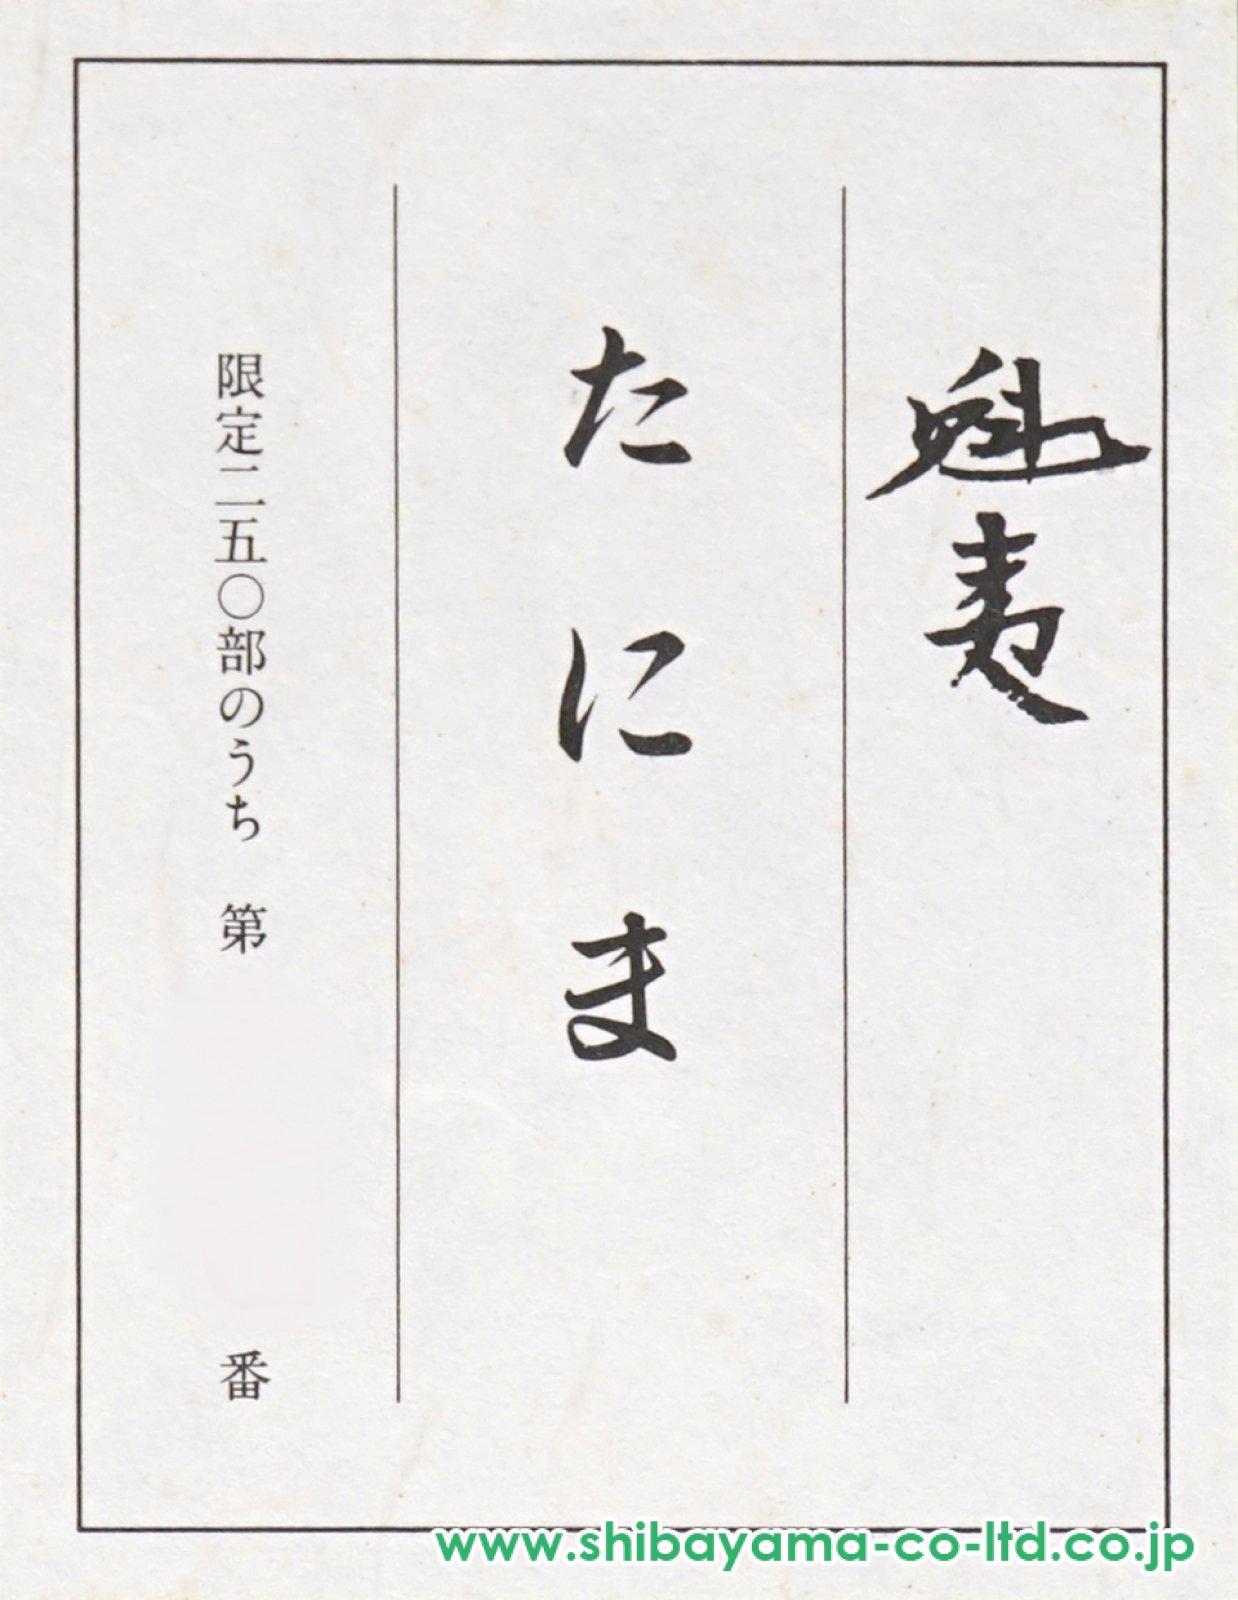 魁夷
たにま
限定二五〇部のうち 第 番
www.shibayama-co-ltd.co.jp